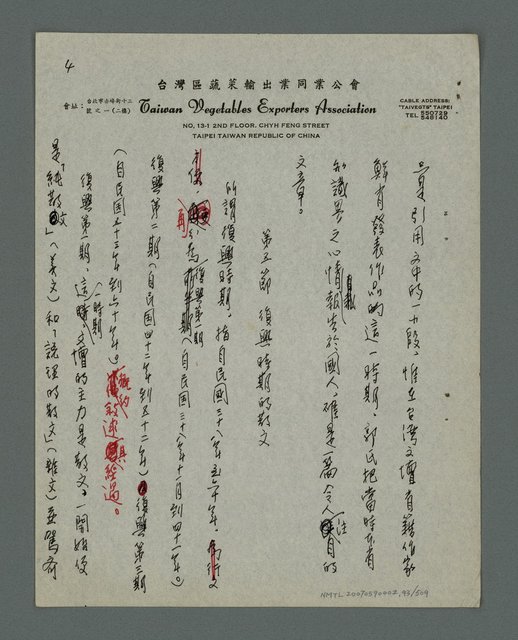 4
台灣區蔬菜輸出業同業公會
會址：台北市赤峰街十三號之一（二樓）
Taiwan Vegetables Exporters Association
CABLE ADDRESS:
"TAIVEGTS" TAIPEI
TEL 550729
548140
NO, 13-1 2ND FLOOR. CHYH FENG STREET
TAIPEI TAIWAN REPUBLIC OF CHINA
只是引用文中的一小段，惟在台灣文壇省籍作家
鮮有發表作品的這一時期，郭氏把當時本省
知識界之心情報告於國人，確是一篇令人注目的
文章。
第三節 復興時期的散文
所謂復興時期，指自民國三十八年至六十年，
方便，再分為復興第一期（自民國三十八年十一月到四十一年。）
復興第二期（自民國四十二年到五十二年）復興第三期
（自民國五十三年到六十年）。概約敘述其經過。
復興第一期，這一時期文壇的主力是散文。一開始便
是「純散文」（美文）和「說理的散文」（雜文）並駕齊
NMTL 20070590002,93/509